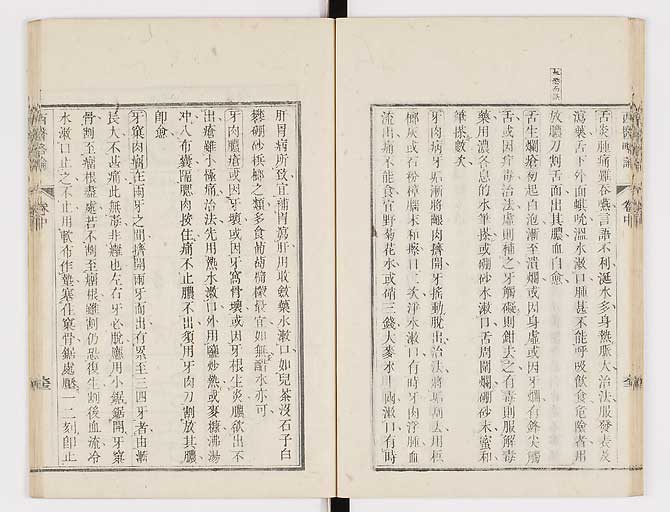 西醫略論 卷中
舌炎腫痛難吞嚥言語不利涎水多身熱脈大治法服發表及
瀉藥舌下外面蜞吮溫水漱口腫甚不能呼吸飲食危險者用
放膿刀割舌面而出其膿血自愈
舌生爛瘡初起白泡漸至潰爛或因身虛或因牙爛有鋒尖觸
舌或因疳毒治法虛則補之牙觸礙則鉗去之有毒則服解毒
藥用濃呂息的水筆搽或硼砂水漱口舌周圍爛硼砂末蜜和
筆搽數次
牙肉病牙垢漸將齦肉擠開牙搖動脫出治法將垢刮去用梹
榔灰或石粉樟腦末和擦日二次淨水漱口有時牙肉浮腫血
流出痛不能食宜野菊花水或硝三錢大麥水十兩漱口有時
肝胃病所致宜補胃瀉肝用收斂藥水漱口如兒茶沒石子白
礬硼砂梹榔之類多食葡萄檸檬最宜如無醋水亦可
牙肉膿瘡或因牙壞或因牙窩骨壞或因牙根生炎膿欲出不
出瘡雖小極痛治法先用熱水漱口外用鹽炒熱或麥糠沸湯
冲入布囊隔腮肉按住痛不止膿不出須用牙肉刀割放其膿
即愈
牙窠肉瘤在兩牙之間擠開兩牙而出有累至三四牙者由漸
長大不甚痛此無毒非癰也左右牙必脫應用小鋸鋸開牙窠
骨割至瘤根盡處若不割至瘤根雖割仍恐復生割後血流冷
水漱口止之不止用軟布作墊塞住窠骨鋸處壓一二刻即止
西醫略論 卷中